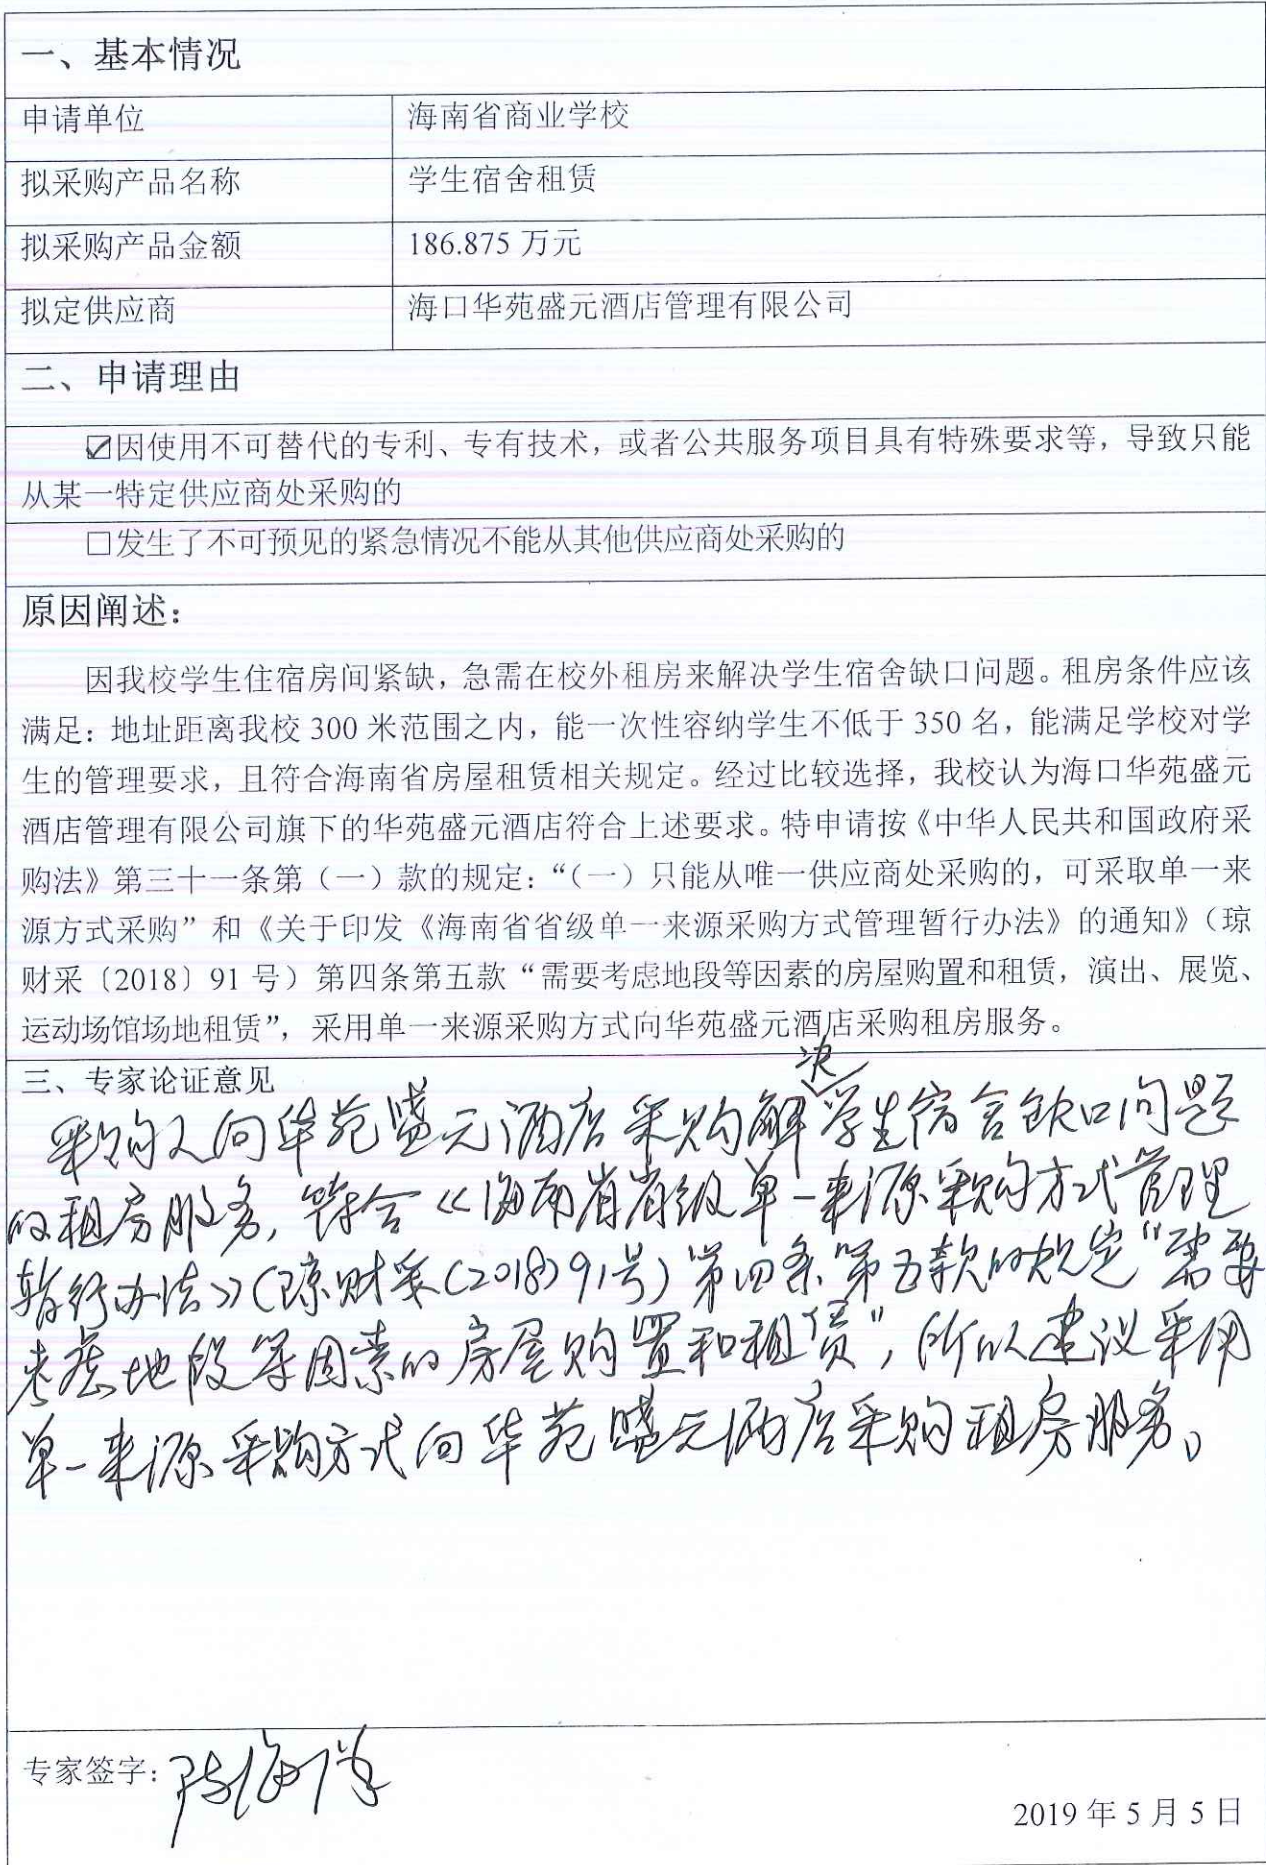 一、基本情况
申请单位
海南省商业学校
拟采购产品名称
学生宿舍租赁
拟采购产品金额
186.875 万元
拟定供应商
海口华苑盛元酒店管理有限公司
二、申请理由
☑因使用不可替代的专利、专有技术，或者公共服务项目具有特殊要求等，导致只能
从某一特定供应商处采购的
☐发生了不可预见的紧急情况不能从其他供应商处采购的
原因阐述：
因我校学生住宿房间紧缺，急需在校外租房来解决学生宿舍缺口问题。租房条件应该
满足：地址距离我校 300 米范围之内，能一次性容纳学生不低于 350 名，能满足学校对学
生的管理要求，且符合海南省房屋租赁相关规定。经过比较选择，我校认为海口华苑盛元
酒店管理有限公司旗下的华苑盛元酒店符合上述要求。特申请按《中华人民共和国政府采
购法》第三十一条第（一）款的规定：“（一）只能从唯一供应商处采购的，可采取单一来
源方式采购”和《关于印发《海南省省级单一来源采购方式管理暂行办法》的通知》（琼
财采〔2018〕91 号）第四条第五款“需要考虑地段等因素的房屋购置和租赁，演出、展览、
运动场馆场地租赁”，采用单一来源采购方式向华苑盛元酒店采购租房服务。
三、专家论证意见
采购人向华苑盛元酒店采购解决学生宿舍缺口问题
的租房服务，符合《海南省省级单一来源采购方式管理
暂行办法》（琼财采（2018）91号）第四条第五款的规定“需要
考虑地段等因素的房屋购置和租赁”，所以建议采用
单一来源采购方式向华苑盛元酒店采购租房服务。
专家签字：
2019 年 5 月 5 日